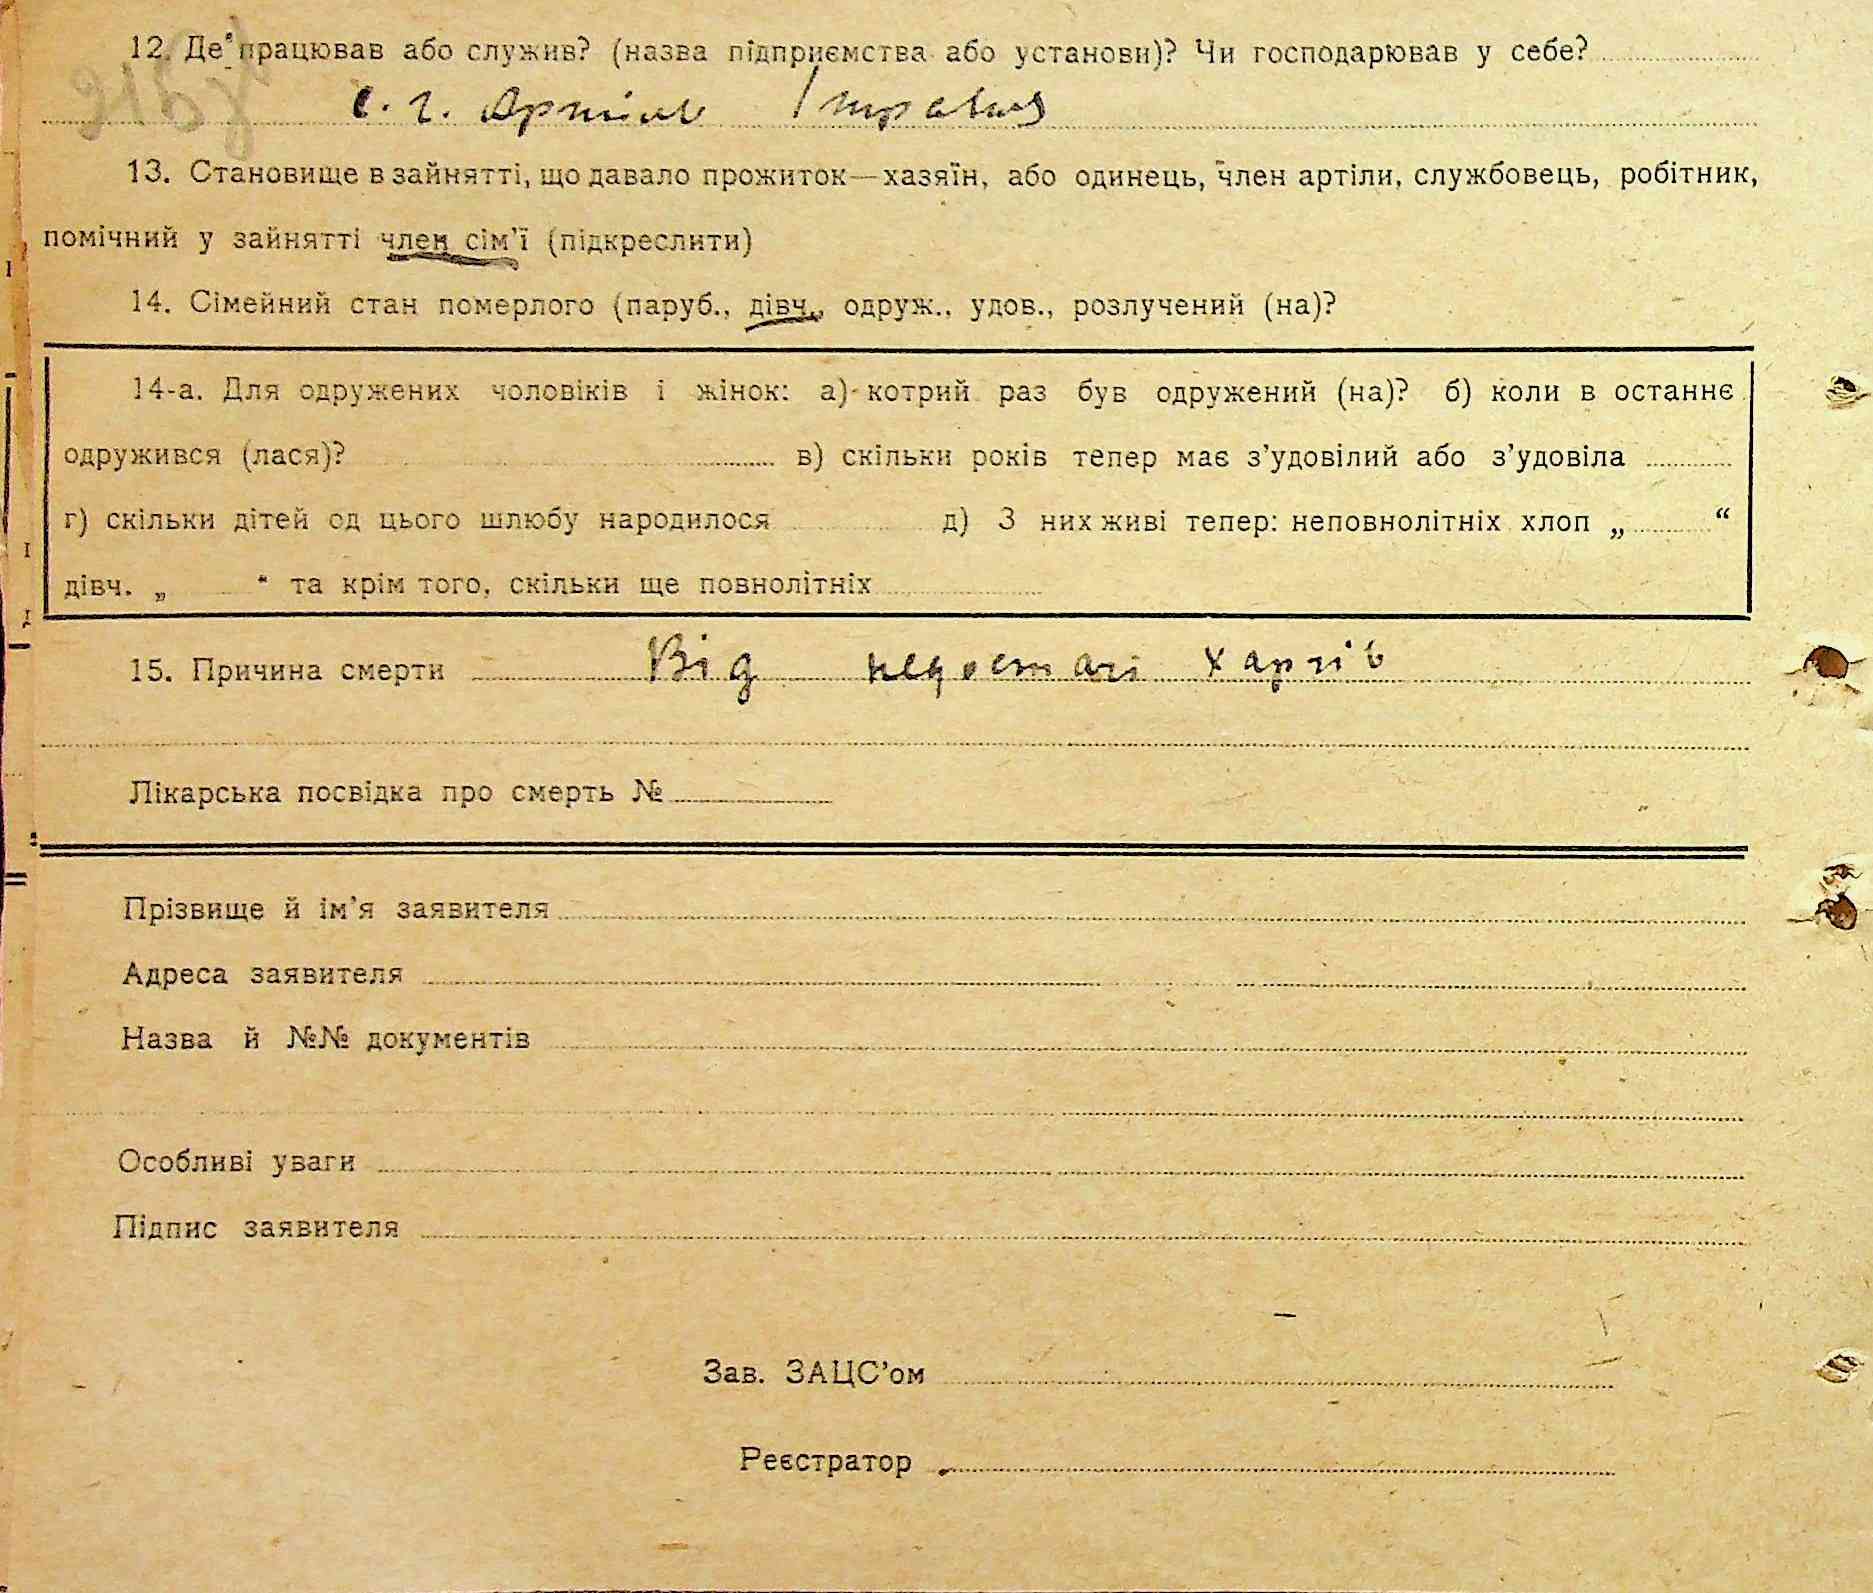 12. Де працював або служив? (назва підприємства або установи)? Чи господарював у себе?
с. г. Артіль 1 травня
13. Становище в зайнятті, що давало прожиток—хазяїн, або одинець, член артіли, службовець, робітник,
помічний у зайнятті член сім'ї (підкреслити)
14. Сімейний стан померлого (паруб., дівч., одруж., удов., розлучений (на)?
14-а. Для одружених чоловіків і жінок: а) котрий раз був одружений (на)? б) коли в останнє
одружився (лася)? в) скільки років тепер має з'удовілий або з'удовіла
г) скільки дітей од цього шлюбу народилося д) З них живі тепер: неповнолітніх хлоп „ “
дівч. „ “ та крім того, скільки ще повнолітніх
15. Причина смерти Від недостачі харчів
Лікарська посвідка про смерть №
Прізвище й ім'я заявителя
Адреса заявителя
Назва й №№ документів
Особливі уваги
Підпис заявителя
Зав. ЗАЦС'ом
Реєстратор